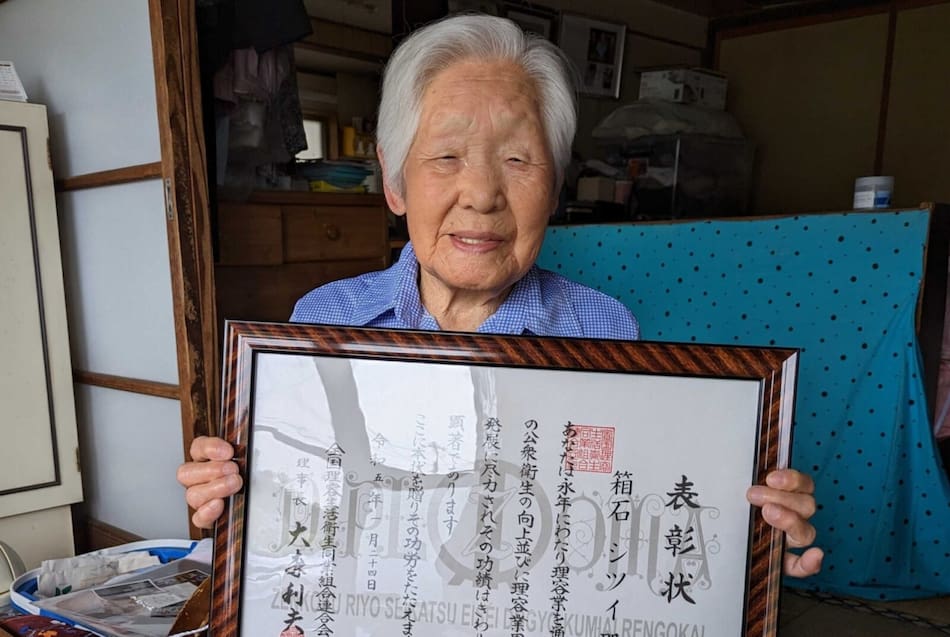 表彰状
箱石 シツイ
あなたは永年にわたり理容業を通
の公衆衛生の向上並びに理容業
発展に尽力されその功績はきわ
顕著であります
ここに本状を贈りその功労をたたえま
令和五年一月二十四日
全国理容生活衛生同業組合連合会
理事長 大森利夫
DIPLOMA
ZENKOKU RIYO SEIKATSU EISEI DOGYO KUMIAI RENGOKAI